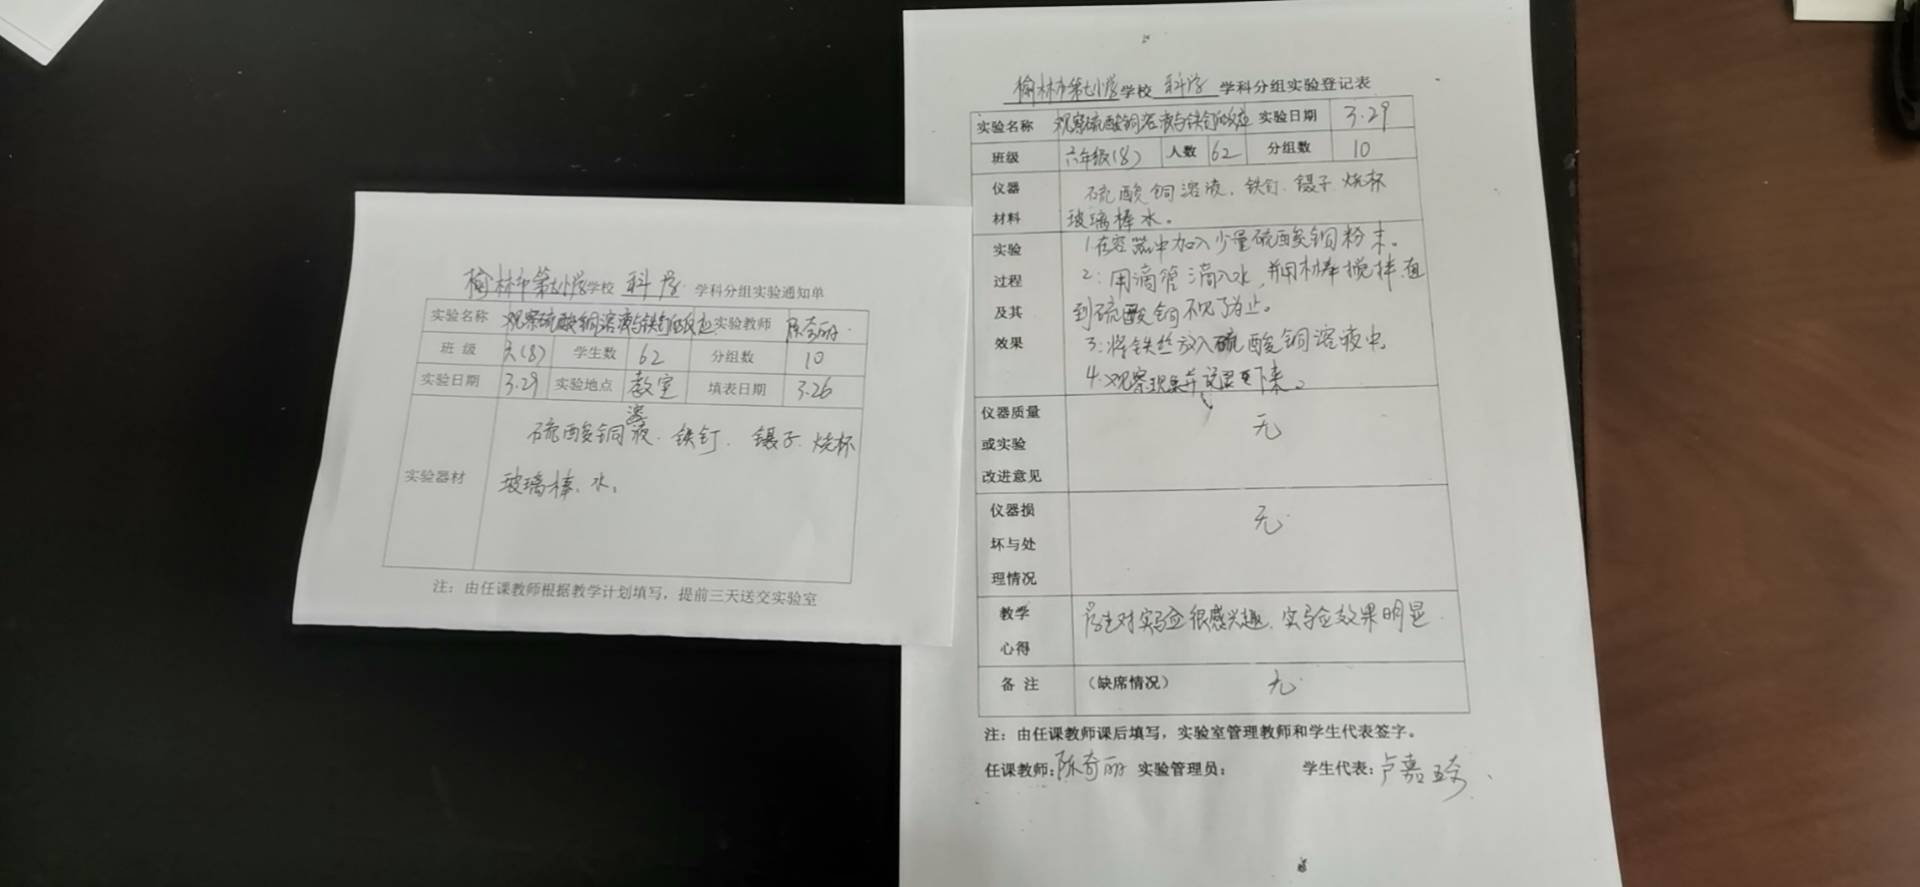 榆林市第七小学学校 科学 学科分组实验通知单
实验名称 观察硫酸铜溶液与铁钉的反应 实验教师 陈奇丽
班 级 六(8) 学生数 62 分组数 10
实验日期 3.29 实验地点 教室 填表日期 3.26
实验器材 硫酸铜溶液. 铁钉. 镊子. 烧杯
玻璃棒. 水.
注: 由任课教师根据教学计划填写, 提前三天送交实验室
榆林市第七小学学校 科学 学科分组实验登记表
实验名称 观察硫酸铜溶液与铁钉的反应 实验日期 3.29
班级 六年级(8) 人数 62 分组数 10
仪器 硫酸铜溶液. 铁钉. 镊子. 烧杯
材料 玻璃棒 水。
实验 1.在容器中加入少量硫酸铜粉末。
过程 2: 用滴管滴入水, 并用木棒搅拌直
及其 到硫酸铜不见了为止。
效果 3: 将铁丝放入硫酸铜溶液中。
4. 观察现象并记录下来。
仪器质量
或实验 无
改进意见
仪器损 无
坏与处
理情况
教学 学生对实验很感兴趣. 实验效果明显
心得
备 注 (缺席情况) 无
注: 由任课教师课后填写, 实验室管理教师和学生代表签字。
任课教师: 陈奇丽 实验管理员: 学生代表: 卢嘉琦